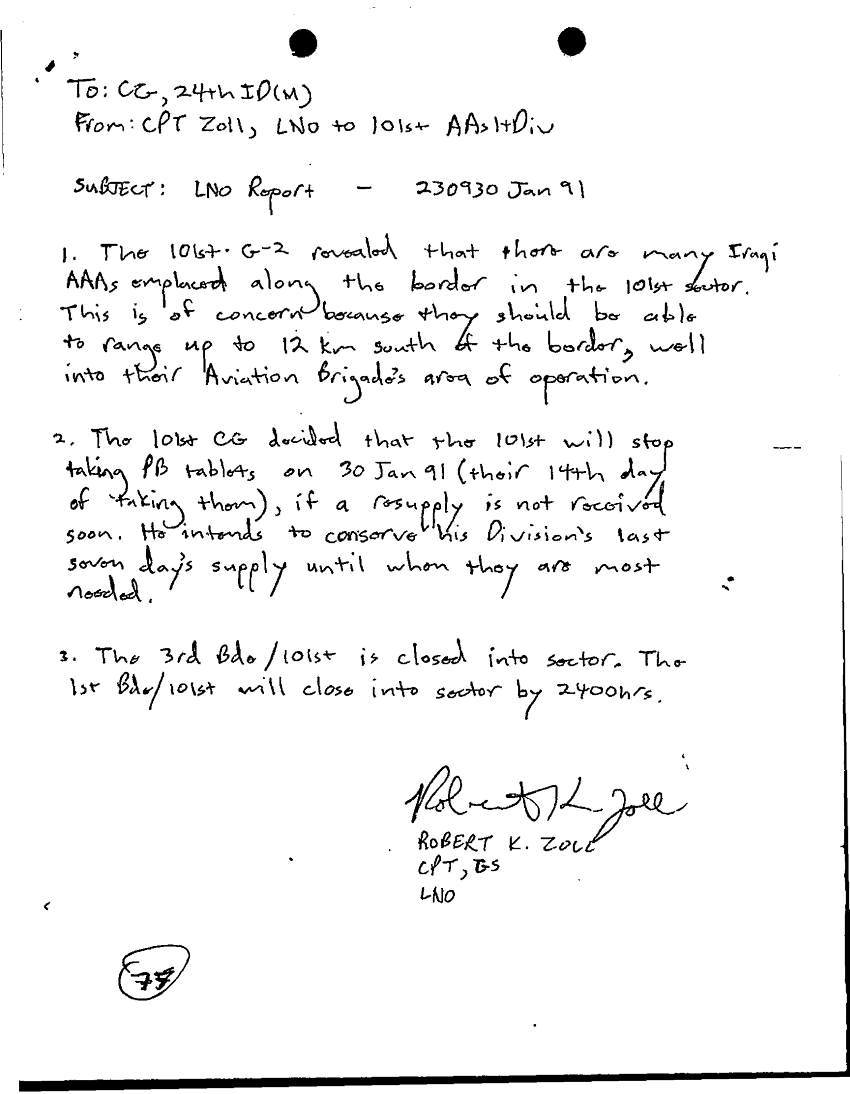 To: CG, 24th ID(M)
From: CPT Zoll, LNO to 101st AAsltDiv
SUBJECT: LNO Report - 230930 Jan 91
1. The 101st G-2 revealed that there are many Iraqi
AAAs emplaced along the border in the 101st sector.
This is of concern because they should be able
to range up to 12 km south of the border, well
into their Aviation Brigade's area of operation.
2. The 101st CG decided that the 101st will stop
taking PB tablets on 30 Jan 91 (their 14th day
of taking them), if a resupply is not received
soon. He intends to conserve his Division's last
seven day's supply until when they are most
needed.
3. The 3rd Bde/101st is closed into sector. The
1st Bde/101st will close into sector by 2400hrs.
Robert K. Zoll
ROBERT K. ZOLL
CPT, GS
LNO